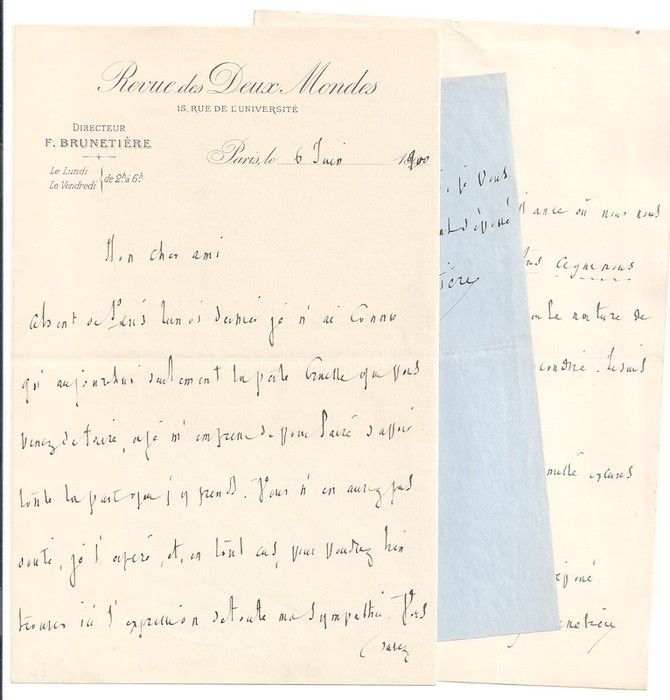 Revue des Deux Mondes
15, RUE DE L'UNIVERSITÉ
DIRECTEUR
F. BRUNETIÈRE
Le Lundi
Le Vendredi
de 2h à 6h
Paris, le 6 Juin 1900
Mon cher ami
Absent de Paris lundi dernier je n'ai connu
qu'aujourd'hui seulement la perte cruelle que vous
venez de faire, et je m'empresse de vous faire savoir
toute la part que j'y prends. Vous n'en aurez pas
douté, je l'espère, et, en tout cas, vous voudrez bien
trouver ici l'expression de toute ma sympathie. Vous
savez
, je vous
dévoué
tière
où nous nous
la nature de
Je suis
mille excuses
dévoué
unetière